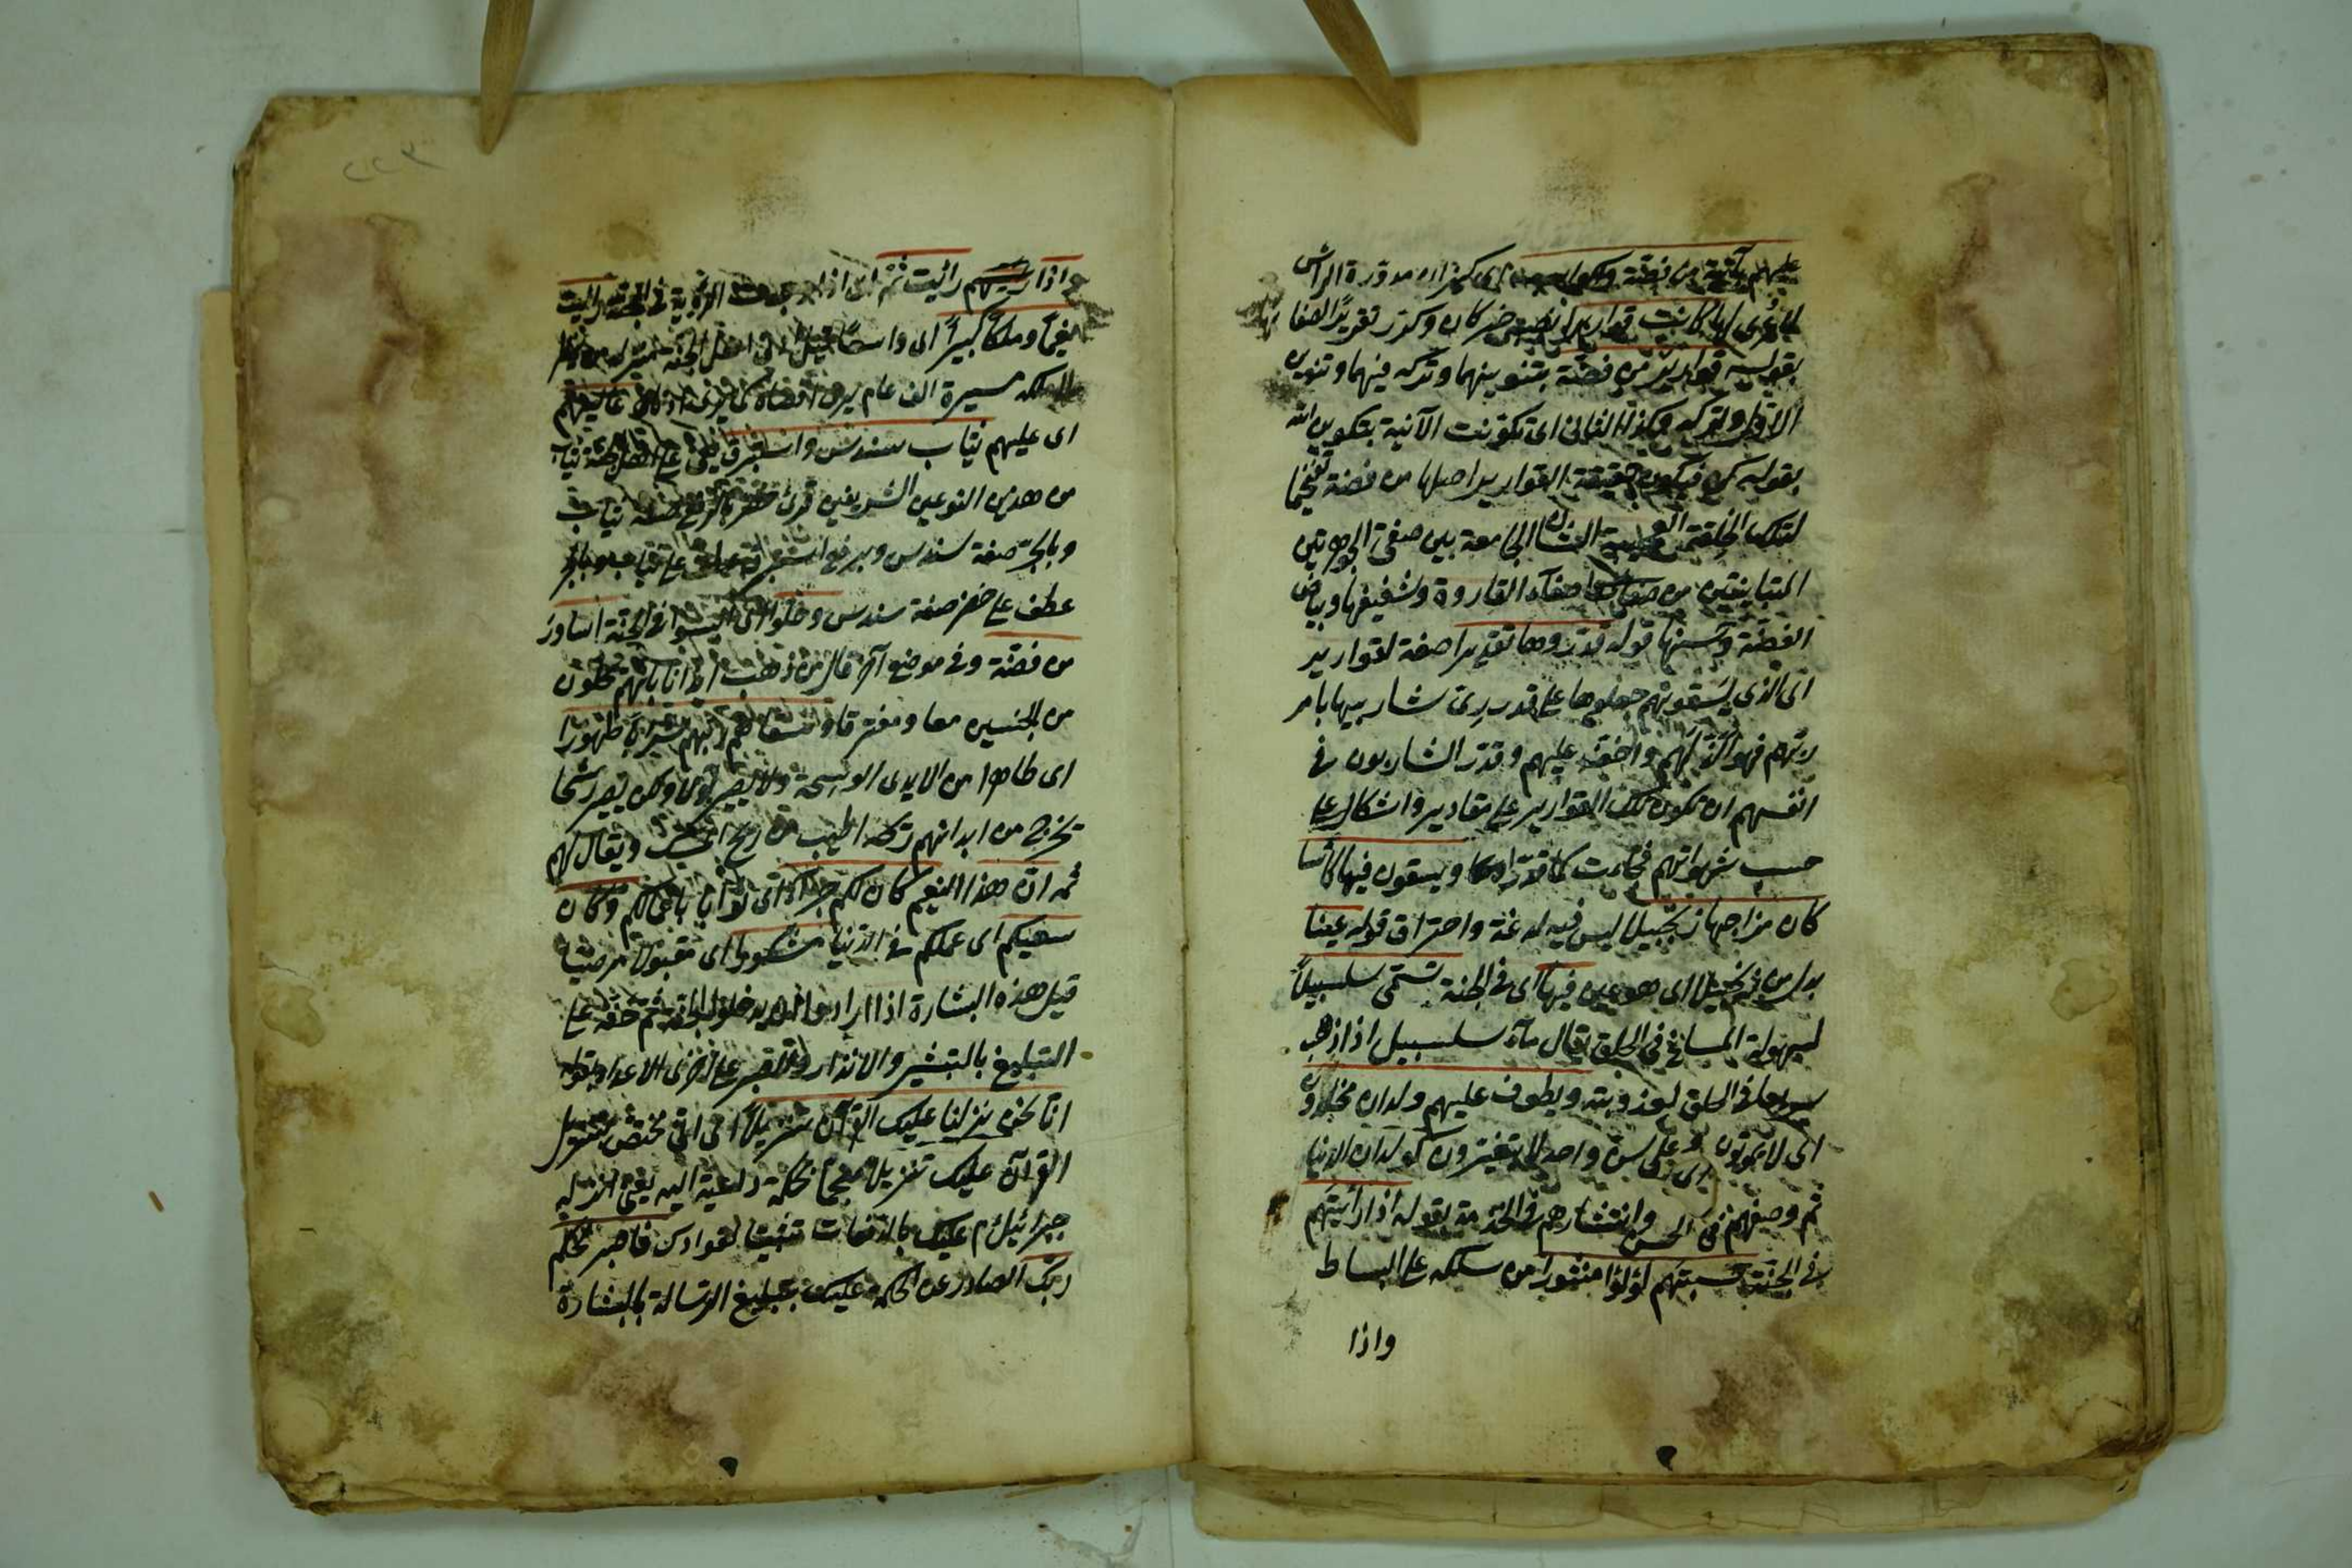 عليهم بآنية من فضة واكواب اى كيزان مدورة الراس
لا عرى لها كانت قواريرا نصب خبر كان وكرر تقريرا لصفائها
بقوله قوارير من فضة بتنوينهما وتركه فيهما وتنوين
الاول وتركه وكذا الثانى اى تكونت الآنية بتكوين الله
بقوله كن فيكون حقيقة القوارير اصلها من فضة تفخيما
لتلك الخلقة العجيبة الشان الجامعة بين صفتى الجوهرين
المتباينتين من صفاء القارورة وشفيفها وبياض
الفضة وحسنها قوله قدروها تقديرا صفة لقوارير
اى الذى يسقونهم جعلوها على قدر رى شاربيها بامر
ربهم فهو الذ لهم واخف عليهم وقدر الشاربون فى
انفسهم ان تكون تلك القوارير على مقادير واشكال على
حسب شهواتهم فجاءت كما قدروا ويسقون فيها كاسا
كان مزاجها زنجبيلا ليس فيه لدغة واحتراق قوله عينا
بدل من زنجبيلا اى هو عين فيها اى فى الجنة تسمى سلسبيلا
لسهولة المساغ فى الحلق يقال ماء سلسبيل اذا ذهب
سريعا فى الحلق لعذوبته ويطوف عليهم ولدان مخلدون
اى لا يموتون وعلى سن واحد لا يتغيرون كولدان الدنيا
ثم وصفهم فى الحسن وانتشارهم فى الخدمة بقوله اذا رأيتهم
فى الجنة حسبتهم لؤلؤا منثورا من سلكه على البساط
واذا
٢٢٣
واذا رأيتهم رأيت ثم اى اذا وجدت الرؤية فى الجنة رأيت
نعيما وملكا كبيرا اى واسعا قيل ادنى اهل الجنة منزلة من ينظر
الى ملكه مسيرة الف عام يرى اقصاه كما يرى ادناه عاليهم
اى عليهم ثياب سندس واستبرق على اهل الجنة ثياب
من هذين النوعين الشريفين قرئ خضر بالرفع صفة ثياب
وبالجر صفة سندس وبرفع استبرق عطف على ثياب وبالجر
عطف على خضر صفة سندس وحلوا اى البسوا فى الجنة اساور
من فضة وفى موضع آخر قال من ذهب ايذانا بانهم يحلون
من الجنسين معا ومفترقا وسقاهم ربهم شرابا طهورا
اى طاهرا من الايدى الوسخة ولا يصير بولا ولكن يصير رشحا
يخرج من ابدانهم رايحته اطيب من ريح المسك ويقال لهم
ثمه ان هذا النعيم كان لكم جزاء اى ثوابا باعمالكم وكان
سعيكم اى عملكم فى الدنيا مشكورا اى مقبولا مرضيا
قيل هذه البشارة اذا ارادوا ان يدخلوا الجنة ثم حثه على
التبليغ بالتبشير والانذار والصبر على اذى الاعداء بقوله
انا نحن نزلنا عليك القرآن تنزيلا اى انى مختص بتنزيل
القرآن عليك تنزيلا منجما بحكمة داعية اليه يعنى انزل به
جبرائيل م عليك بالدفعات تثبيتا لفوادك فاصبر لحكم
ربك الصادر عن الحكمة عليك بتبليغ الرسالة بالبشارة